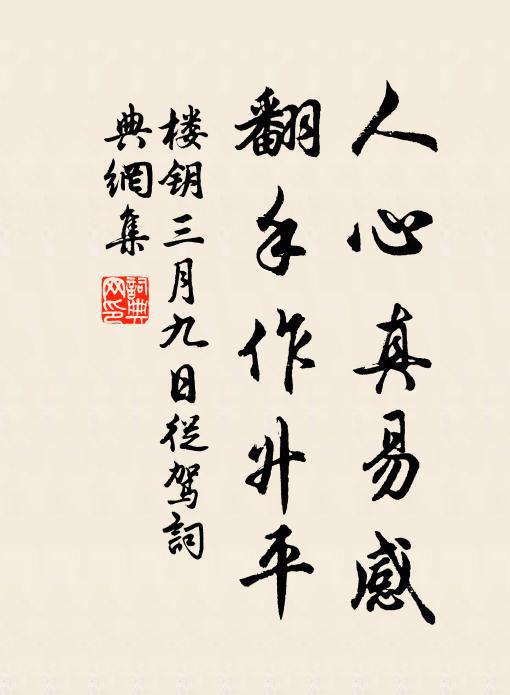 人心真易感
翻手作升平
楼钥三月九日従驾詞
典網集
詞典
网印